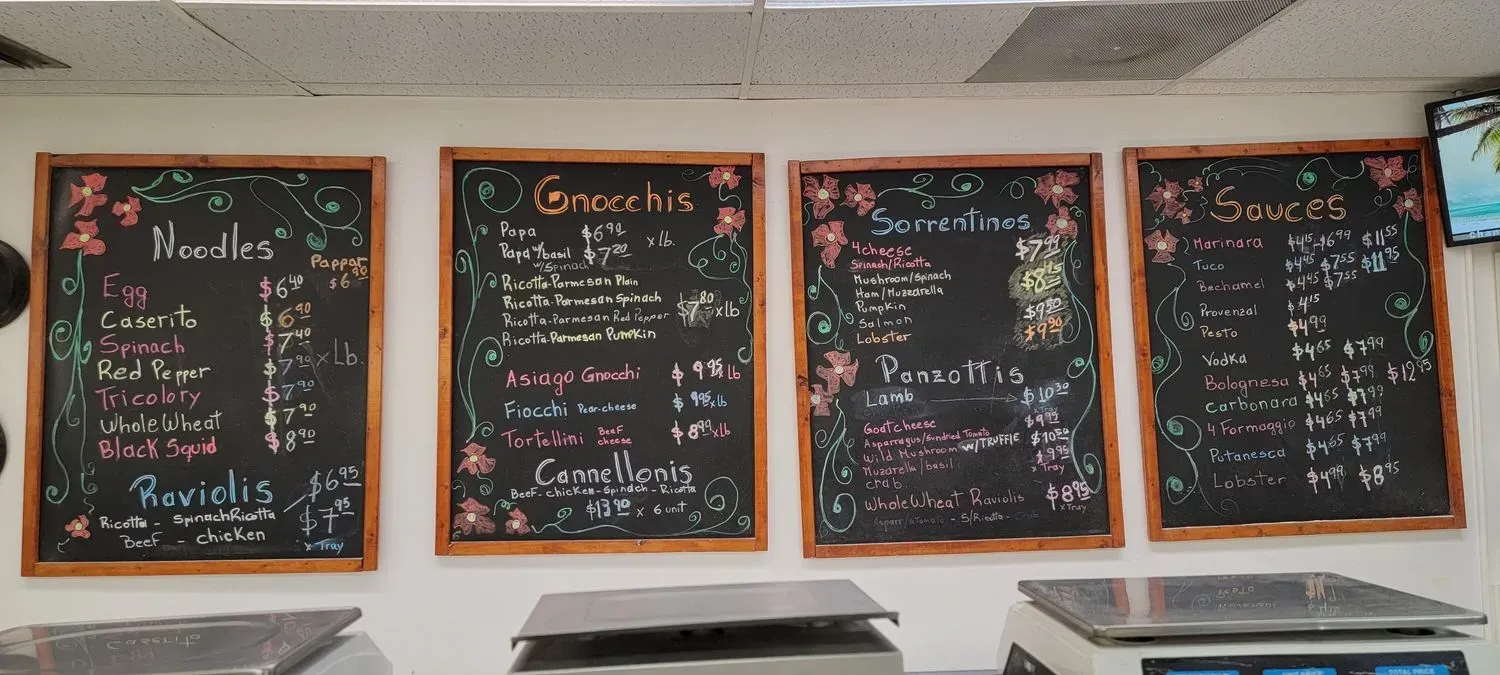 Noodles
Pappar
$6.90
Egg $6.40
Caserito $6.90
Spinach $7.40
Red Pepper $7.90 x Lb.
Tricolory $7.90
Whole Wheat $7.90
Black Squid $8.90
Raviolis $6.95
Ricotta - Spinach Ricotta $7.95
Beef - chicken
x Tray
Gnocchis
Papa $6.90 x lb.
Papa w/basil $7.20
w/Spinach
Ricotta-Parmesan Plain
Ricotta-Parmesan Spinach $7.80 x lb
Ricotta-Parmesan Red Pepper
Ricotta-Parmesan Pumpkin
Asiago Gnocchi $9.95 x Lb
Fiocchi Pear-cheese $9.95 x Lb
Tortellini Beef cheese $8.99 x Lb
Cannellonis
Beef-chicken-Spinach-Ricotta
$13.90 x 6 unit
Sorrentinos
4 cheese $7.99
Spinach/Ricotta
Mushroom/Spinach $8.15
Ham/Muzzarella
Pumpkin $9.50
Salmon
Lobster $9.90
Panzottis
Lamb $10.30
x Tray
Goat cheese $9.95
Asparragus/Sundried Tomato
Wild Mushroom w/TRUFFLE $10.50
Muzarella/basil $9.95
crab x Tray
Whole Wheat Raviolis $8.95
x Tray
Asparr/sTomato - S/Ricotta - Crab
Sauces
Marinara $4.15 $6.99 $11.55
Tuco $4.45 $7.55 $11.95
Bechamel $4.45 $7.55
Provenzal $4.15
Pesto $4.99
Vodka $4.65 $7.99
Bolognesa $4.65 $7.99 $12.95
Carbonara $4.65 $7.99
4 Formaggio $4.65 $7.99
Putanesca $4.65 $7.99
Lobster $4.99 $8.95
TOTAL PRICE